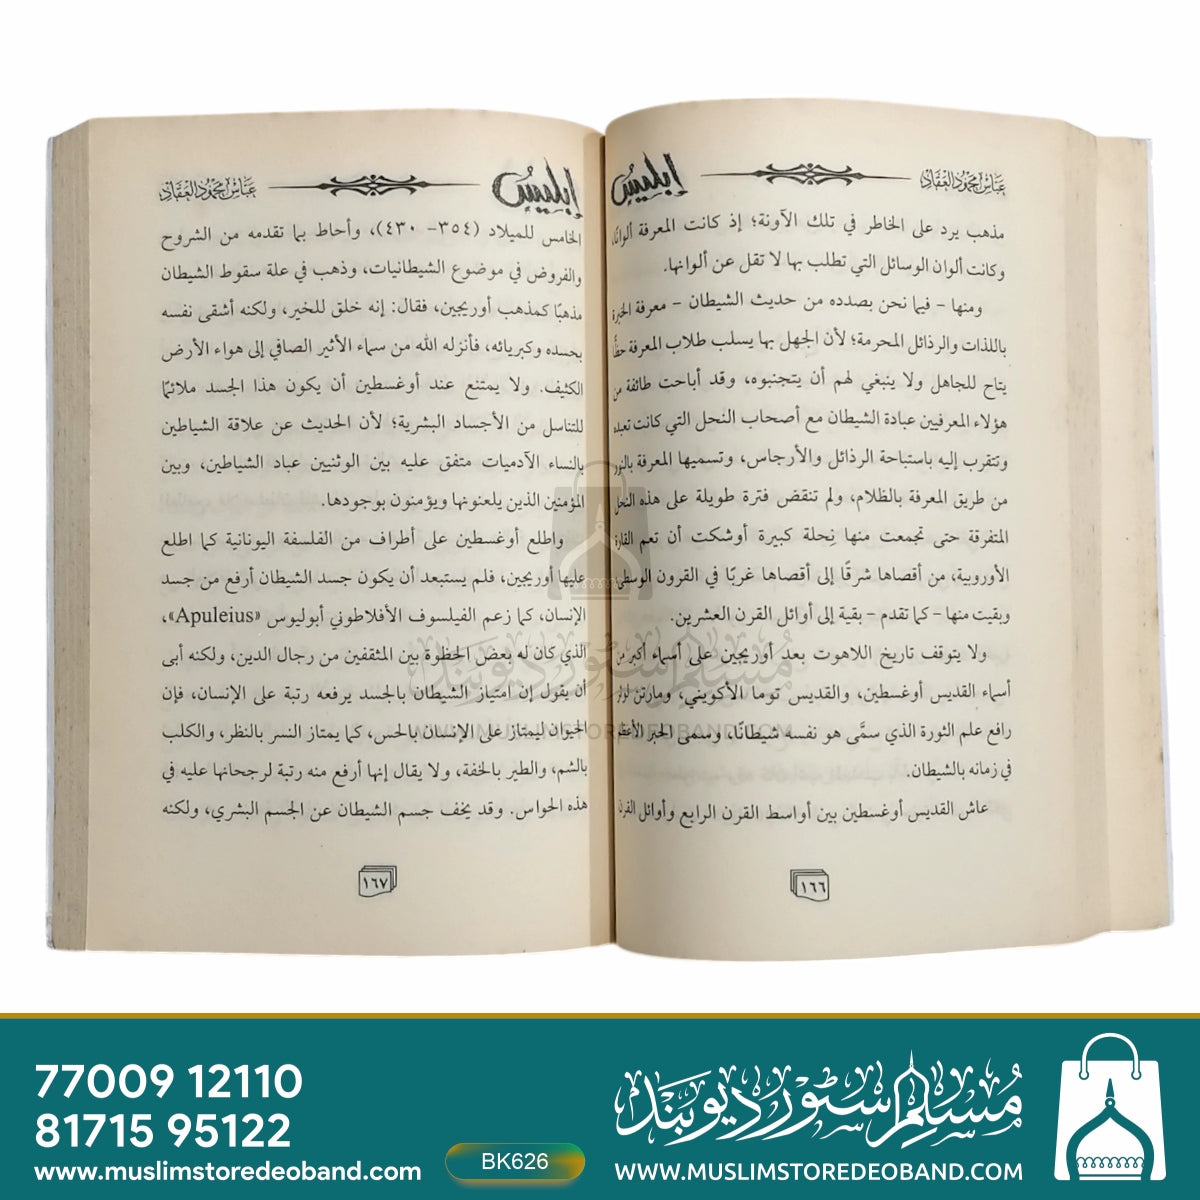 عباس محمود العقاد
إبليس
مذهب يرد على الخاطر في تلك الآونة؛ إذ كانت المعرفة ألوانًا،
وكانت ألوان الوسائل التي تطلب بها لا تقل عن ألوانها.
ومنها - فيما نحن بصدده من حديث الشيطان - معرفة الخبرة
باللذات والرذائل المحرمة؛ لأن الجهل بها يسلب طلاب المعرفة حظًّا
يتاح للجاهل ولا ينبغي لهم أن يتجنبوه، وقد أباحت طائفة من
هؤلاء المعرفيين عبادة الشيطان مع أصحاب النحل التي كانت تعبده
وتتقرب إليه باستباحة الرذائل والأرجاس، وتسميها المعرفة بالنور
من طريق المعرفة بالظلام، ولم تنقض فترة طويلة على هذه النحل
المتفرقة حتى تجمعت منها نِحلة كبيرة أوشكت أن تعم القارة
الأوروبية، من أقصاها شرقًا إلى أقصاها غربًا في القرون الوسطى
وبقيت منها - كما تقدم - بقية إلى أوائل القرن العشرين.
ولا يتوقف تاريخ اللاهوت بعد أوريجين على أسماء أكبر من
أسماء القديس أوغسطين، والقديس توما الأكويني، ومارتن لوثر
رافع علم الثورة الذي سمَّى هو نفسه شيطانًا، وسمى الحبر الأعظم
في زمانه بالشيطان.
عاش القديس أوغسطين بين أواسط القرن الرابع وأوائل القرن
١٦٦
إبليس
عباس محمود العقاد
الخامس للميلاد (٣٥٤- ٤٣٠)، وأحاط بما تقدمه من الشروح
والفروض في موضوع الشيطانيات، وذهب في علة سقوط الشيطان
مذهبًا كمذهب أوريجين، فقال: إنه خلق للخير، ولكنه أشقى نفسه
بحسده وكبريائه، فأنزله الله من سماء الأثير الصافي إلى هواء الأرض
الكثيف. ولا يمتنع عند أوغسطين أن يكون هذا الجسد ملائمًا
للتناسل من الأجساد البشرية؛ لأن الحديث عن علاقة الشياطين
بالنساء الآدميات متفق عليه بين الوثنيين عباد الشياطين، وبين
المؤمنين الذين يلعنونها ويؤمنون بوجودها.
واطلع أوغسطين على أطراف من الفلسفة اليونانية كما اطلع
عليها أوريجين، فلم يستبعد أن يكون جسد الشيطان أرفع من جسد
الإنسان، كما زعم الفيلسوف الأفلاطوني أبوليوس «Apuleius»،
الذي كان له بعض الحظوة بين المثقفين من رجال الدين، ولكنه أبى
أن يقول إن امتياز الشيطان بالجسد يرفعه رتبة على الإنسان، فإن
الحيوان ليمتاز على الإنسان بالحس، كما يمتاز النسر بالنظر، والكلب
بالشم، والطير بالخفة، ولا يقال إنها أرفع منه رتبة لرجحانها عليه في
هذه الحواس. وقد يخف جسم الشيطان عن الجسم البشري، ولكنه
١٦٧
مسلم سٹور دیوبند
WWW.MUSLIMSTOREDEOBAND.COM
77009 12110
81715 95122
www.muslimstoredeoband.com
BK626
مُسلم سٹور دیوبند
WWW.MUSLIMSTOREDEOBAND.COM